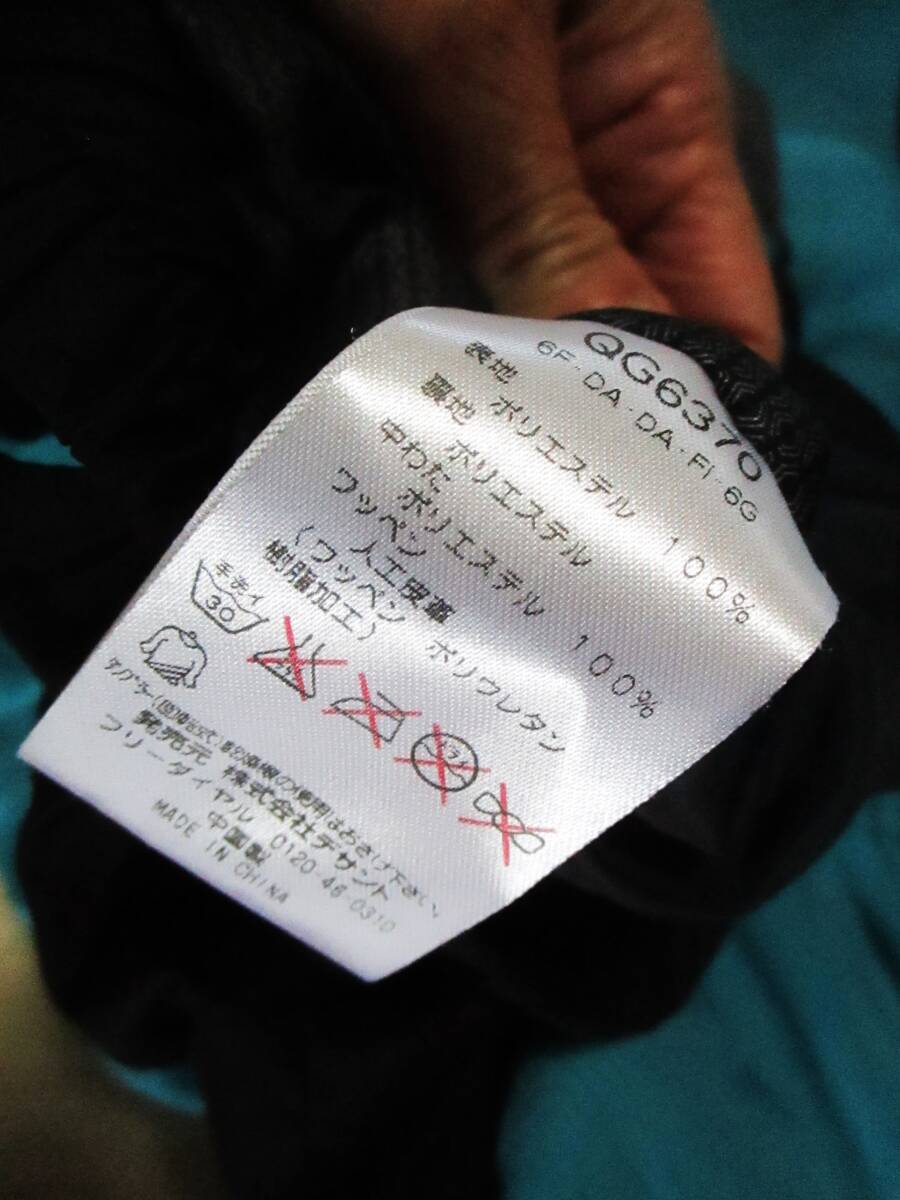 QG6370
6F-DA-DA-FI-6G
表地 ポリエステル 100%
裏地 ポリエステル
中わた ポリエステル 100%
ワッペン
人工皮革
(ワッペン ポリウレタン
樹脂加工)
手洗イ
30
ドライ
タンブラー(回転缶式)型の乾燥機の使用はおさけ下さい。
発売元 株式会社デサント
フリーダイヤル 0120-46-0310
中国製
MADE IN CHINA